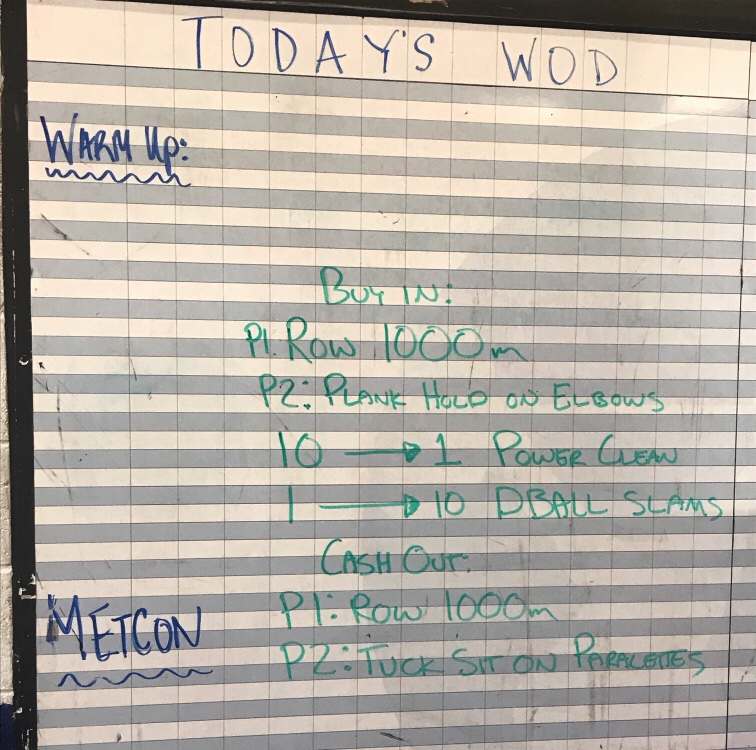 TODAY'S WOD
WARM UP:
BUY IN:
P1: ROW 1000m
P2: PLANK HOLD ON ELBOWS
10 → 1 POWER CLEAN
1 → 10 DBALL SLAMS
CASH OUT:
P1: ROW 1000m
METCON
P2: TUCK SIT ON PARALETTES